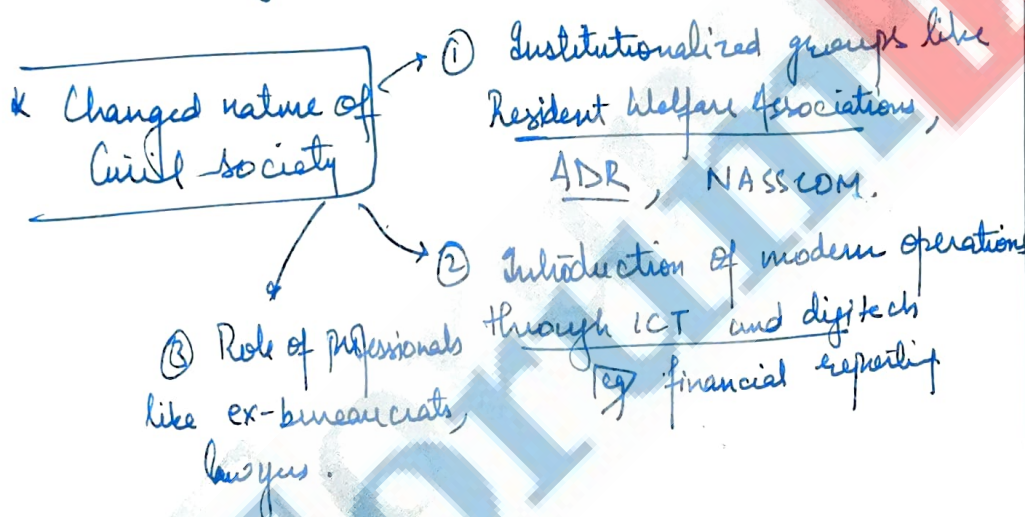 * Changed nature of
Civil society
① Institutionalized groups like
Resident Welfare Associations,
ADR, NASSCOM.
② Introduction of modern operations
through ICT and digitech
eg financial reporting
③ Role of professionals
like ex-bureaucrats,
lawyers.